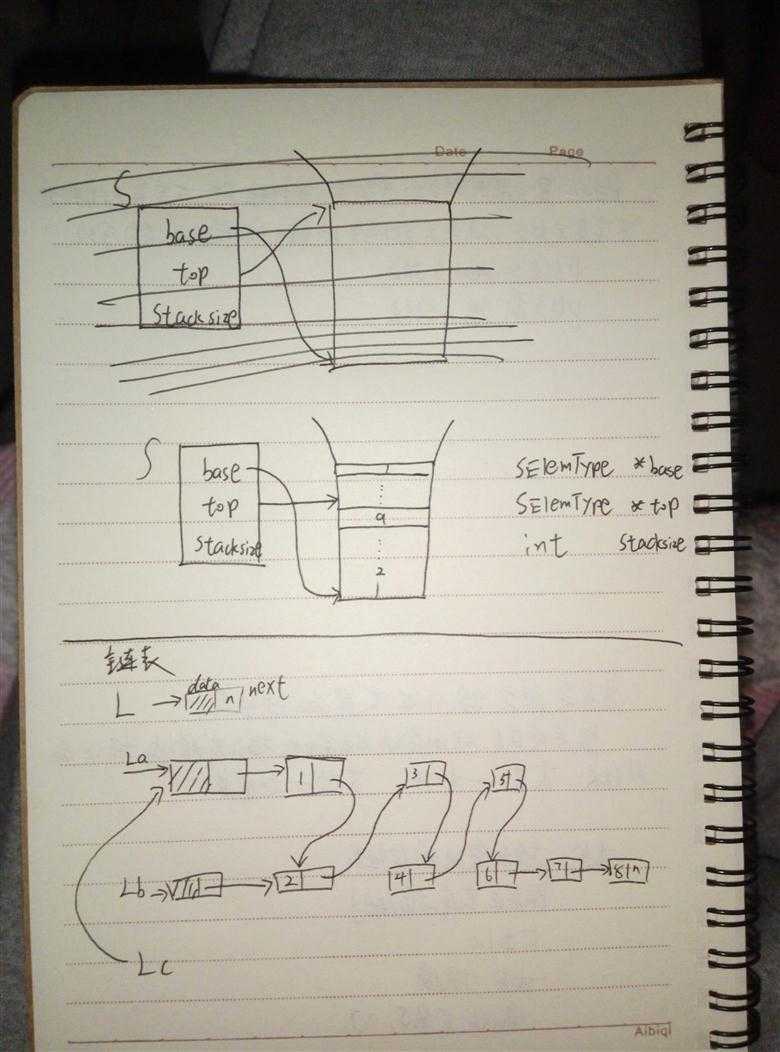 Date Page
S
base
top
Stacksize
S
base
top
Stacksize
1
⋮
a
⋮
2
1
SElemType *base
SElemType *top
int Stacksize
链表
L data n next
La 1 3 5
Lb 2 4 6 7 8 n
Lc
Aibiqi